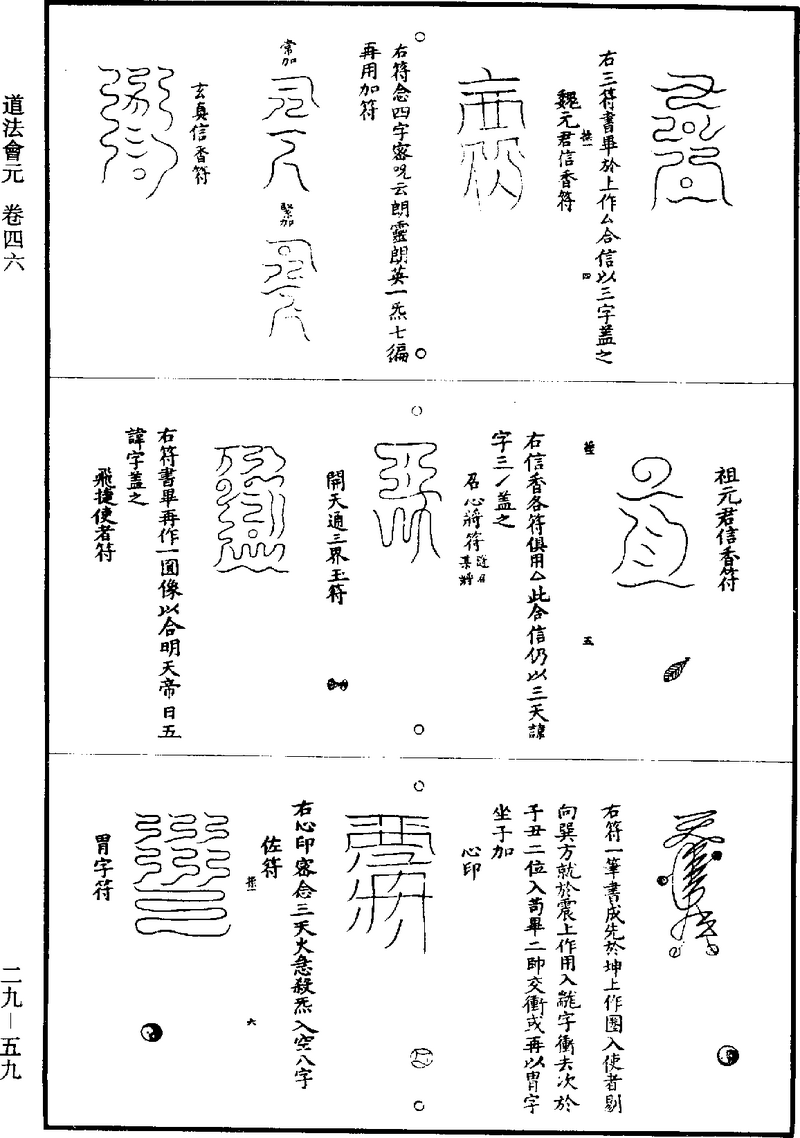 道法會元 卷四六
二九—五九
右三符書畢於上作厶合信以三字蓋之
魏元君信香符
四
右符念四字密咒云朗靈朗英一炁七編
再用加符
常加
緊加
玄真信香符
祖元君信香符
五
右信香各符俱用厶此合信仍以三天諱
字三丿蓋之
召心將符
開天通三界玉符
右符書畢再作一圓像以合明天帝日五
諱字蓋之
飛捷使者符
右符一筆書成先於坤上作圈入使者剔
向巽方就於震上作用入魓字衝去次於
子丑二位入茍畢二帥交衝或再以胃字
坐子加
心印
右心印密念三天火急殺炁入空八字
佐符
六
胃字符